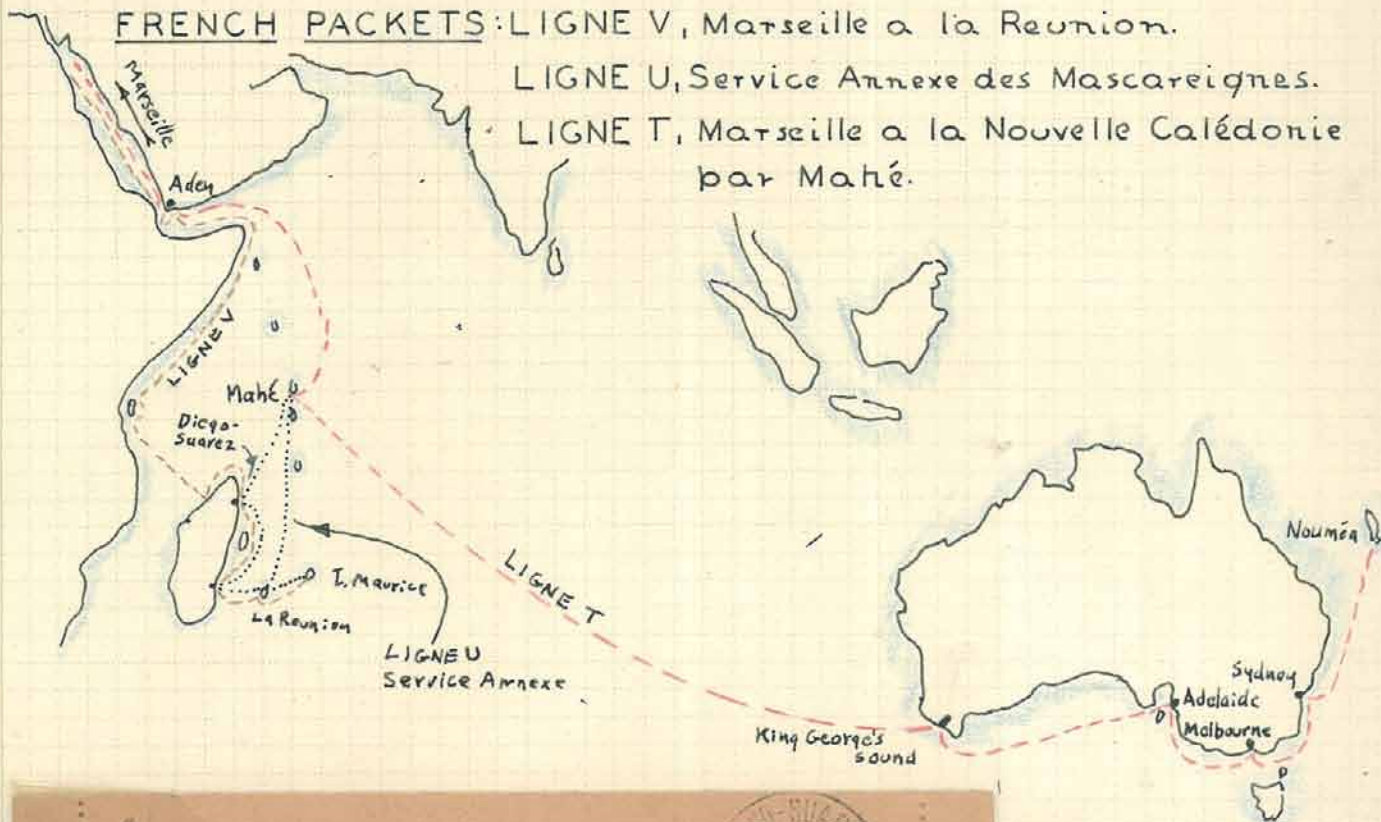 FRENCH PACKETS: LIGNE V, Marseille a la Reunion.
LIGNE U, Service Annexe des Mascareignes.
LIGNE T, Marseille a la Nouvelle Calédonie
par Mahé.
Marseille
Aden
LIGNE V
Mahé
Diego-
Suarez
I. Maurice
La Reunion
LIGNE U
Service Annexe
LIGNE T
King George's
Sound
Adelaide
Melbourne
Sydney
Nouméa